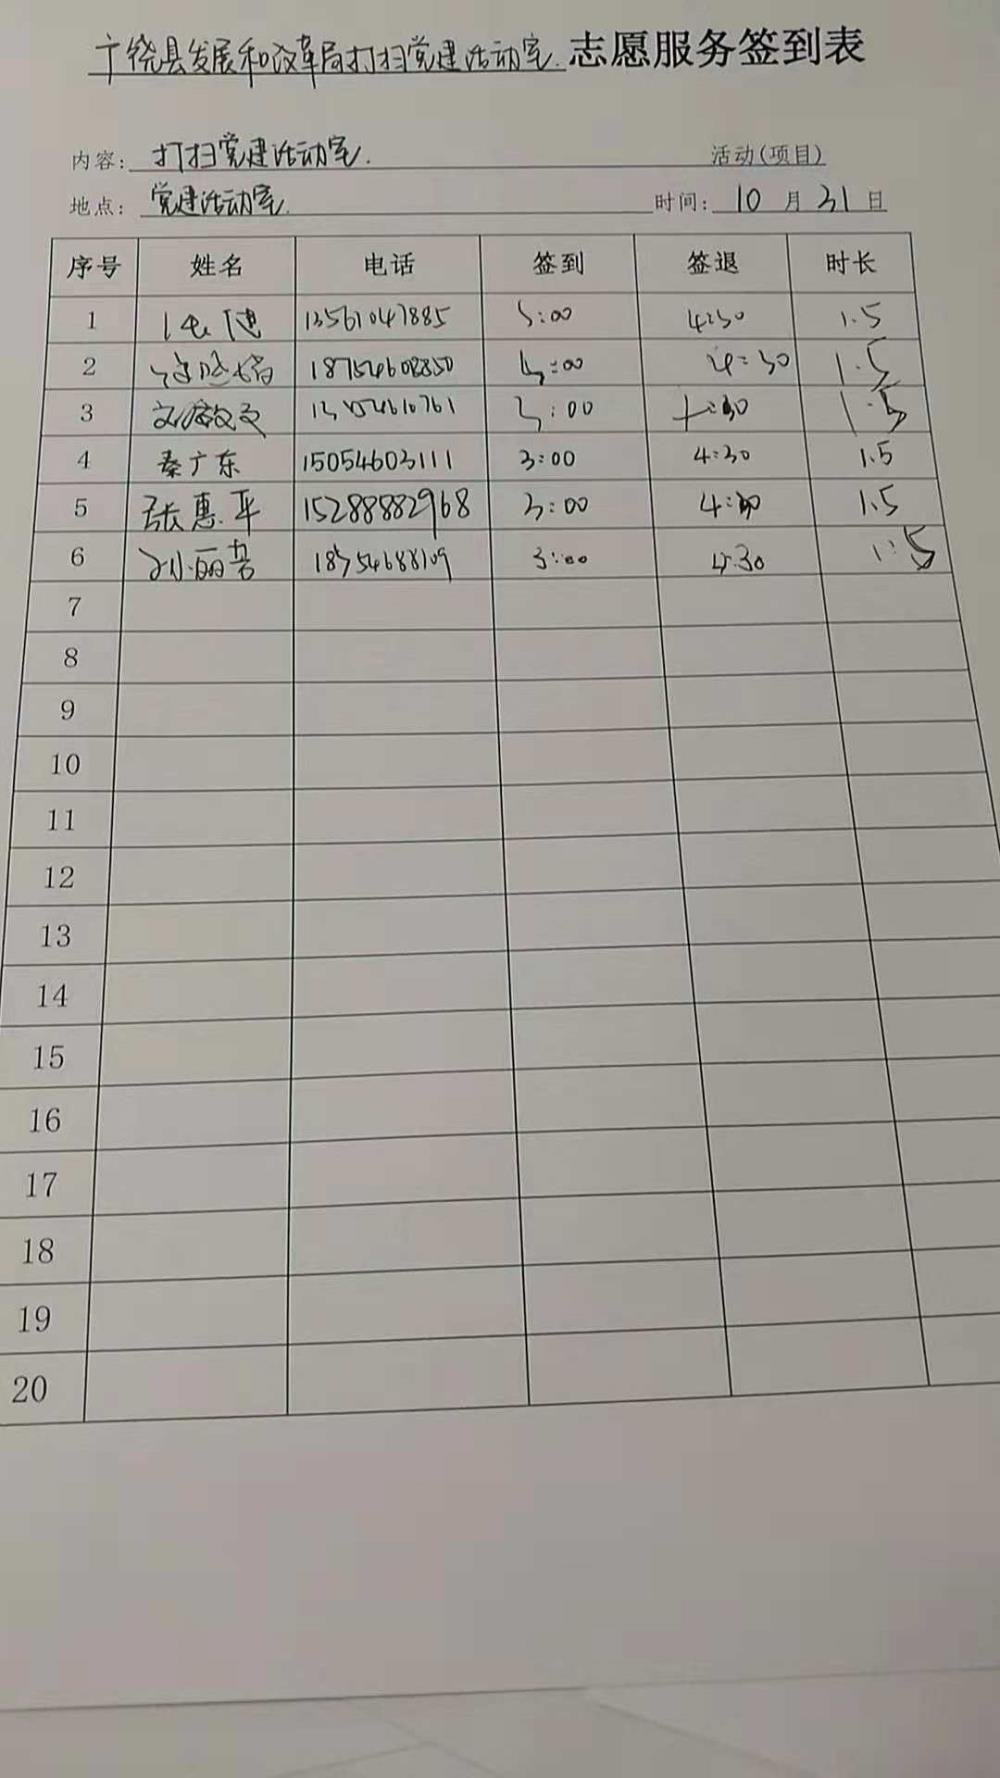 广饶县发展和改革局打扫党建活动室 志愿服务签到表
内容: 打扫党建活动室. 活动(项目)
地点: 党建活动室. 时间: 10 月 31 日
序号 姓名 电话 签到 签退 时长
1 13561047885 3:00 4:30 1.5
2 3:00 4:30 1.5
3 3:00 4:30 1.5
4 秦广东 15054603111 3:00 4:30 1.5
5 张惠平 15288882968 3:00 4:30 1.5
6 3:00 4:30 1:5
7
8
9
10
11
12
13
14
15
16
17
18
19
20